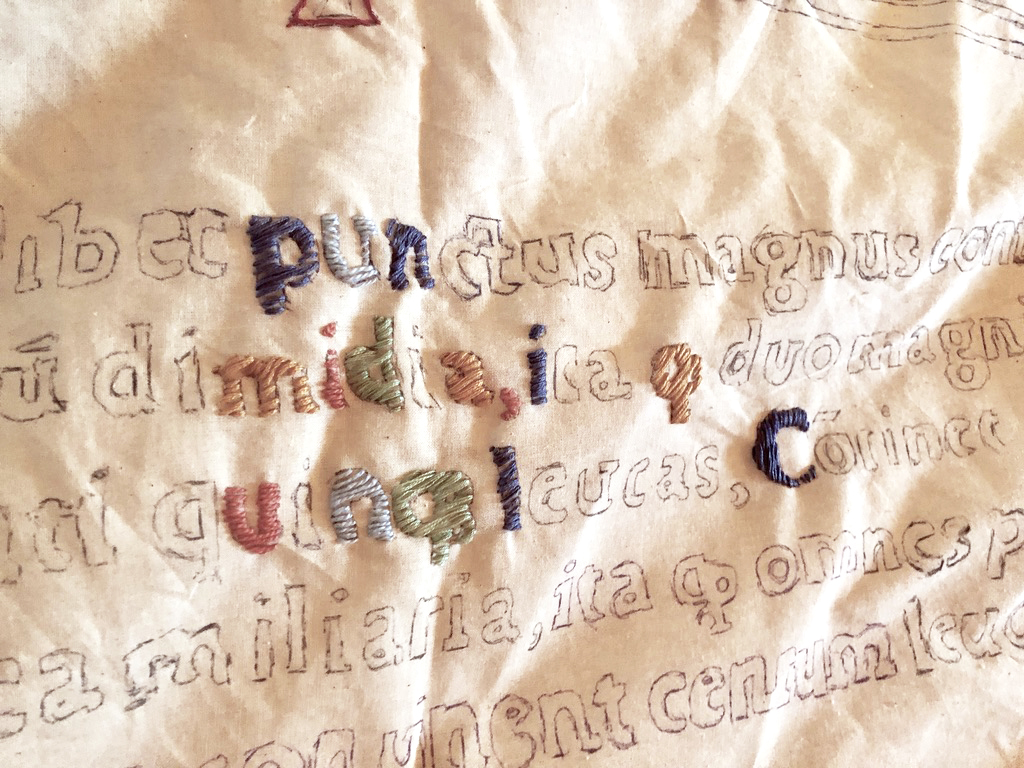 punctus magnus cont
ū di midia, ita ꝙ duo magn
quinqꝫ leucas, Cōtinet
miliaria, ita ꝙ omnes p
continent centum leuc